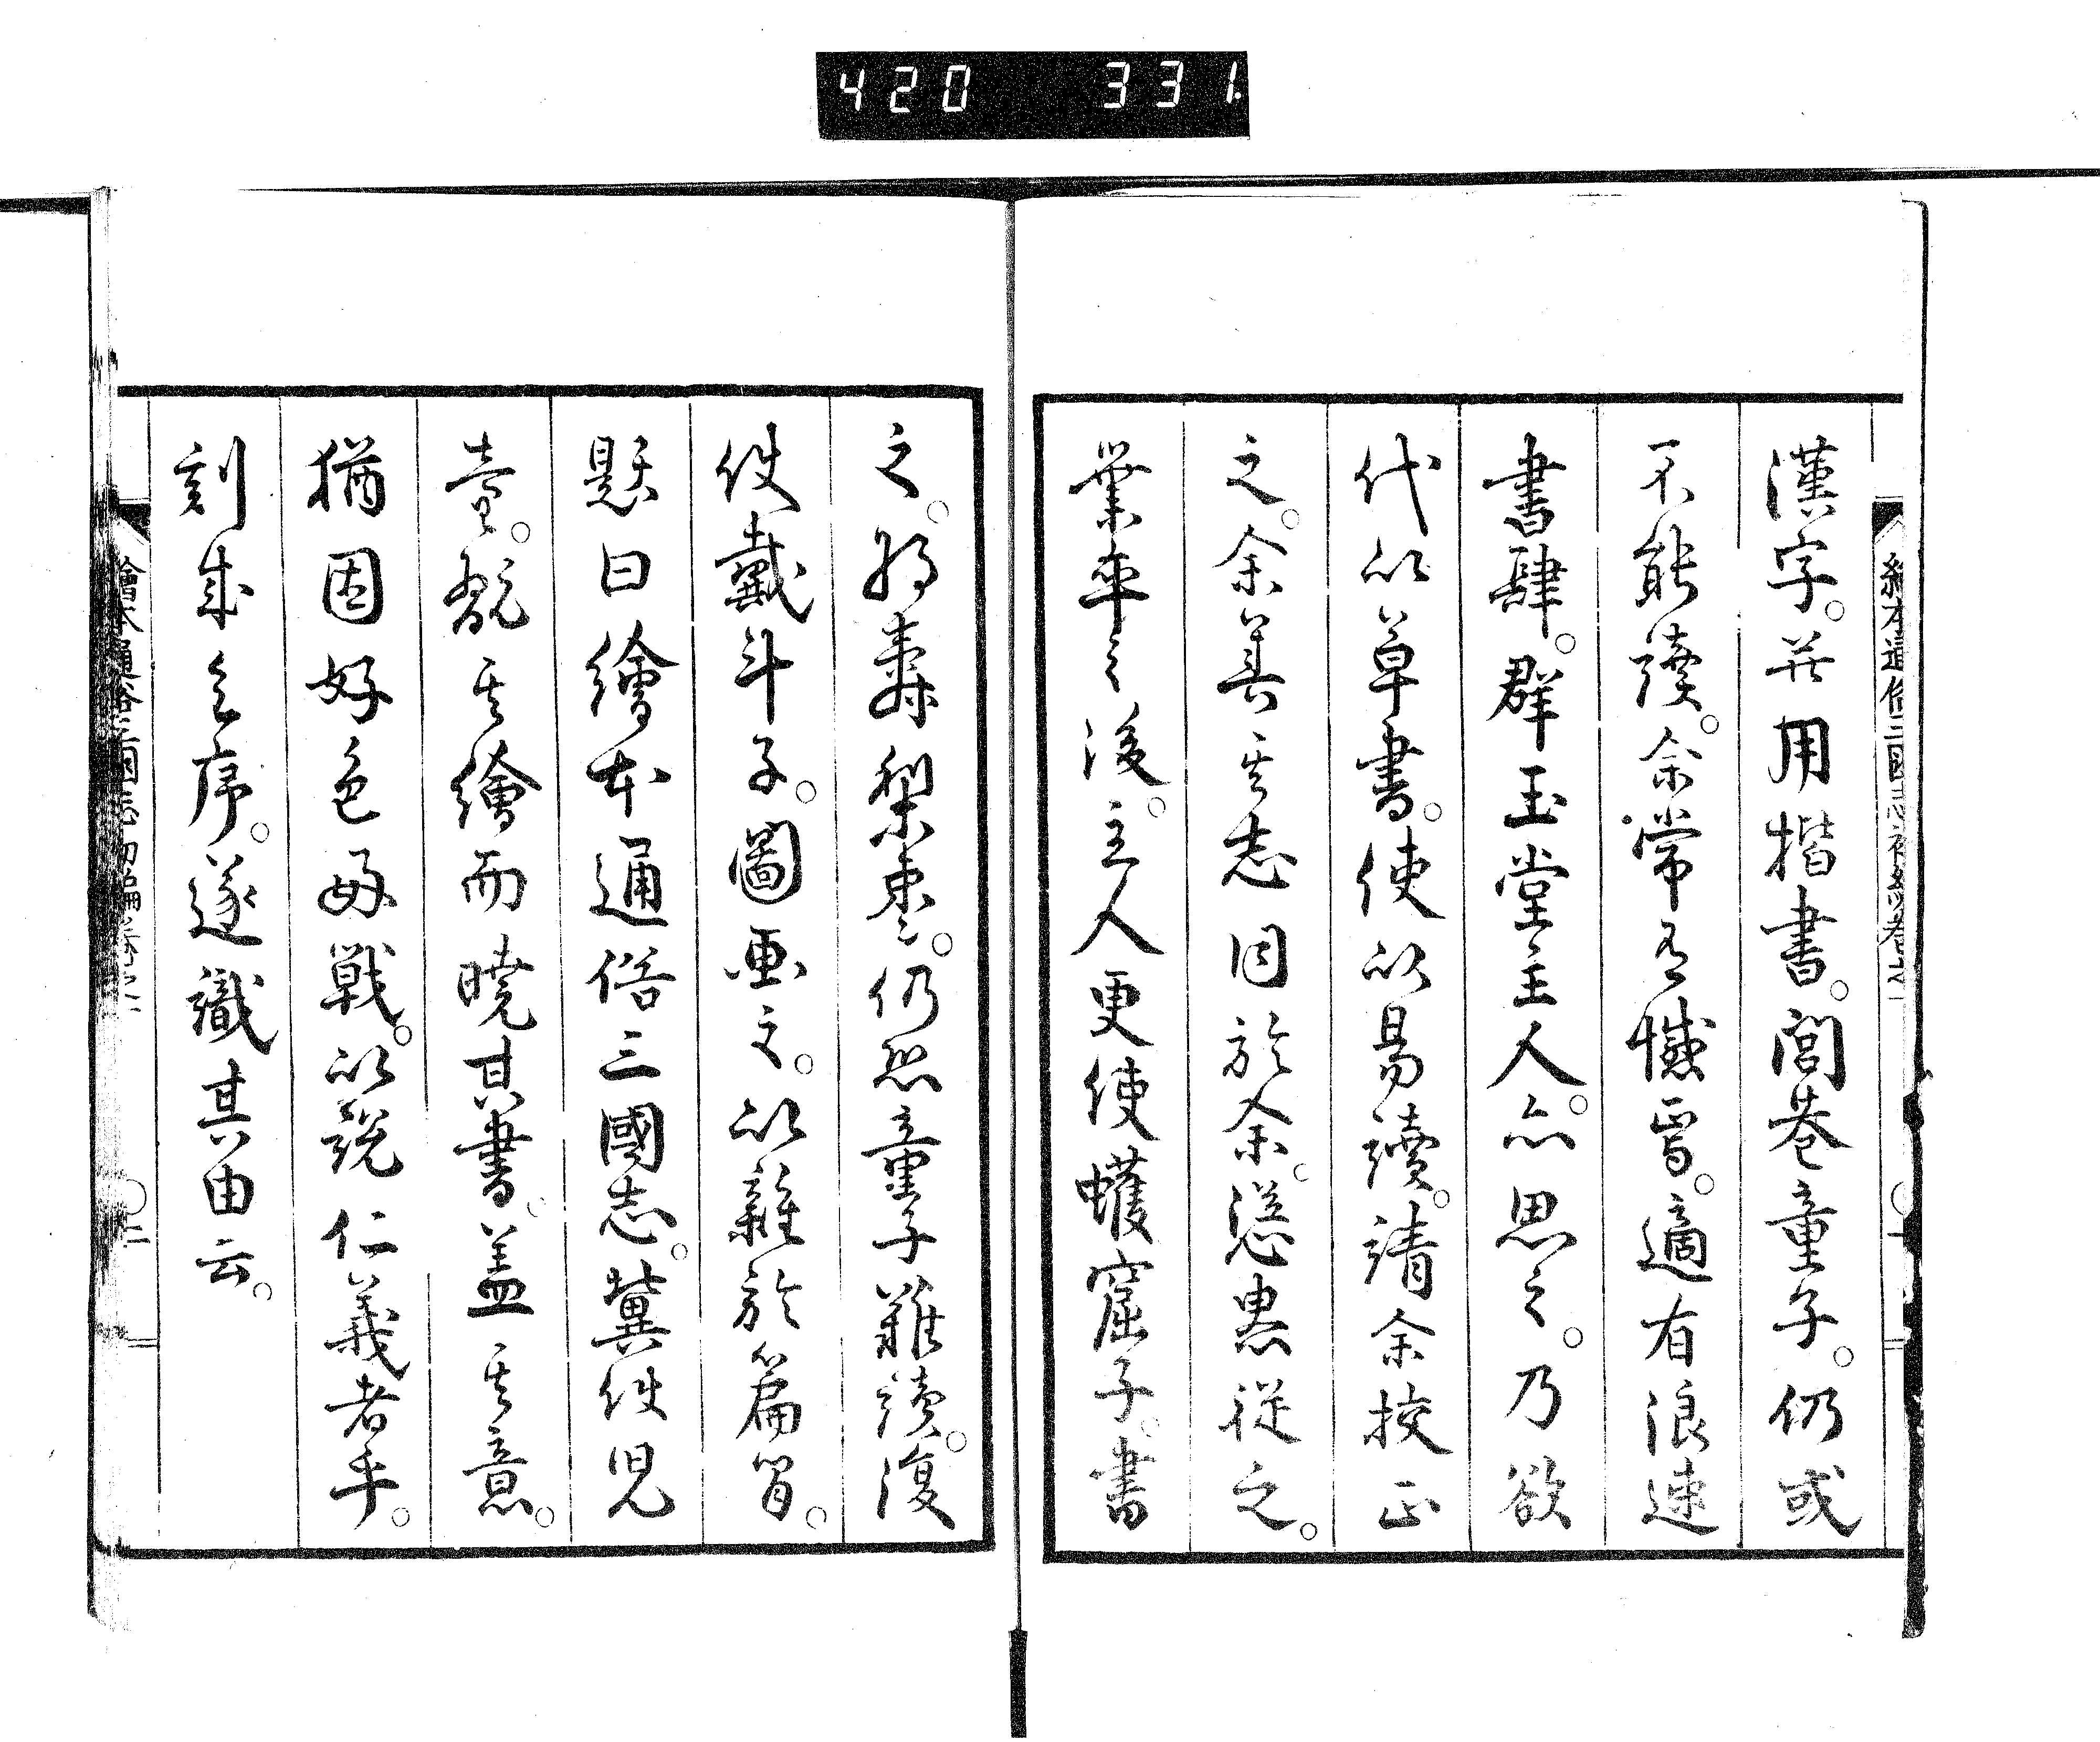 420 331
漢字。并用楷書。閭巷童子。仍或
不能読。余常有憾焉。適有浪速
書肆。群玉堂主人。亦思之。乃欲
代以草書。使以易讀。請余挍正
之。余善其志因於余。慫恿従之。
業卒之後。主人更使蠖窟子。書
之。将壽梨棗。仍恐童子難讀。復
使戴斗子。圖画之。以雜於篇間。
題曰繪本通俗三國志。冀使児
童。翫其繪而曉其書。盖其意。
猶因好色好戰。以説仁義者乎。
刻成乞序。遂識其由云。
繪本通俗三國志初編巻之一 二